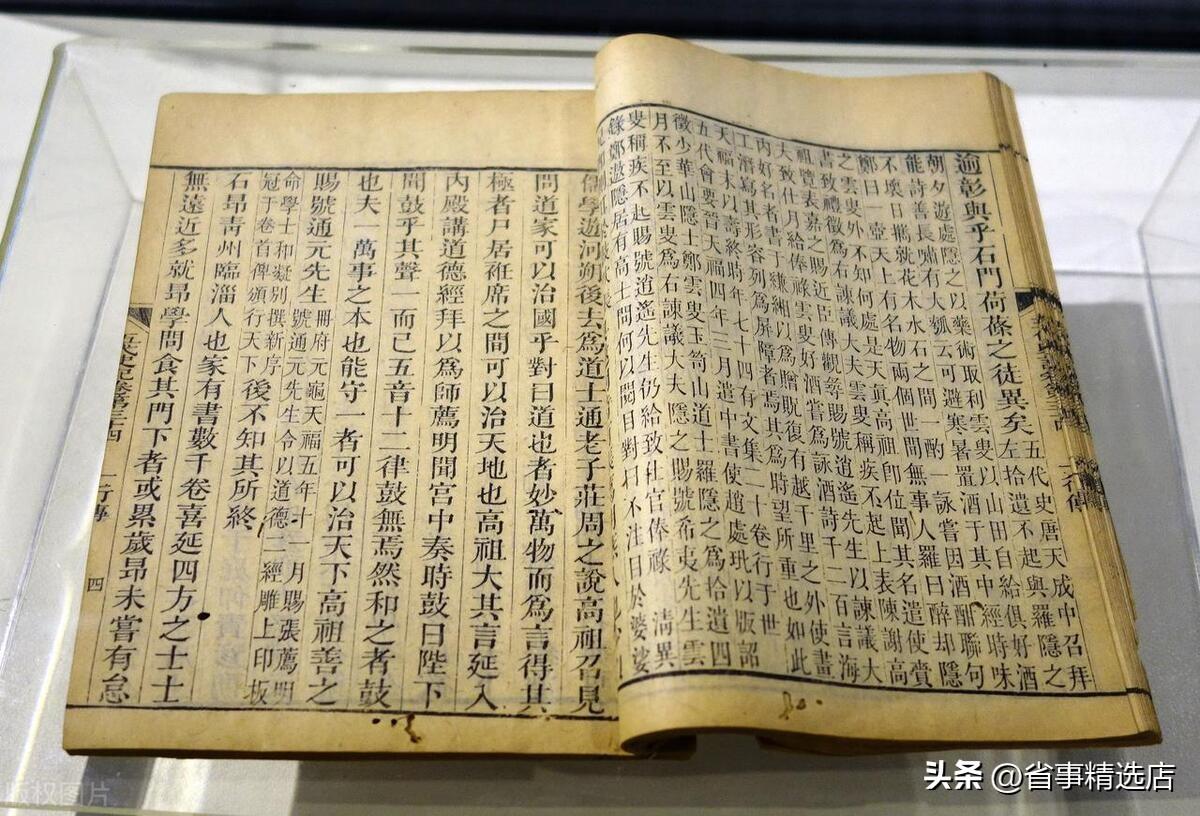 逾彰與乎石門荷蓧之徒異矣五代史唐天成中召拜
左拾遺不起與羅隱之
朝夕遊處隱之以藥術取利雲叟以山田自給俱好酒
能詩善長嘯有大瓠云可避寒暑置酒于其中經時味
不壞日攜就花木水石之間一酌一詠嘗因酒酣聯句
鄭曰一壺天上有名物兩個世間無事人羅曰醉却隱
之雲叟外不知何處是天真高祖即位聞其名遣使賫
書致禮徵爲右諫議大夫雲叟稱疾不起上表陳謝高
祖覽表嘉之賜近臣傳觀尋賜號逍遙先生以諫議大
夫致仕月給俸祿雲叟好酒嘗爲詠酒詩千二百言海
内好名者書于縑緗以爲贈貺復有越千里之外使畫
工潛寫其形容列爲屏障者焉其爲時望所重也如此
天福末以壽終時年七十四有文集二十卷行于世
五代會要晉天福四年三月遣中書使趙處玭以版詔
徵少華山隱士鄭雲叟玉笥山道士羅隱之爲拾遺四
月不至以雲叟爲右諫議大夫隱之賜號希夷先生雲
叟稱疾不起賜號逍遙先生仍給致仕官俸祿 清異
錄鄭遨隱居有高士問何以閱目對曰不注目於婆娑
儒學遊河朔後去爲道士通老子莊周之說高祖召見
問道家可以治國乎對曰道也者妙萬物而爲言得其
極者尸居袵席之間可以治天地也高祖大其言延入
内殿講道德經拜以爲師薦明聞宮中奏時鼓曰陛下
聞鼓乎其聲一而已五音十二律鼓無焉然和之者鼓
也夫一萬事之本也能守一者可以治天下高祖善之
賜號通元先生冊府元龜天福五年十一月賜張薦明
號通元先生令以道德二經雕上印板
命學士和凝別撰新序
冠于卷首俾頒行天下後不知其所終
石昂青州臨淄人也家有書數千卷喜延四方之士士
無遠近多就昂學問食其門下者或累歲昂未嘗有怠
一行傳
四
头条 @省事精选店
版权图片